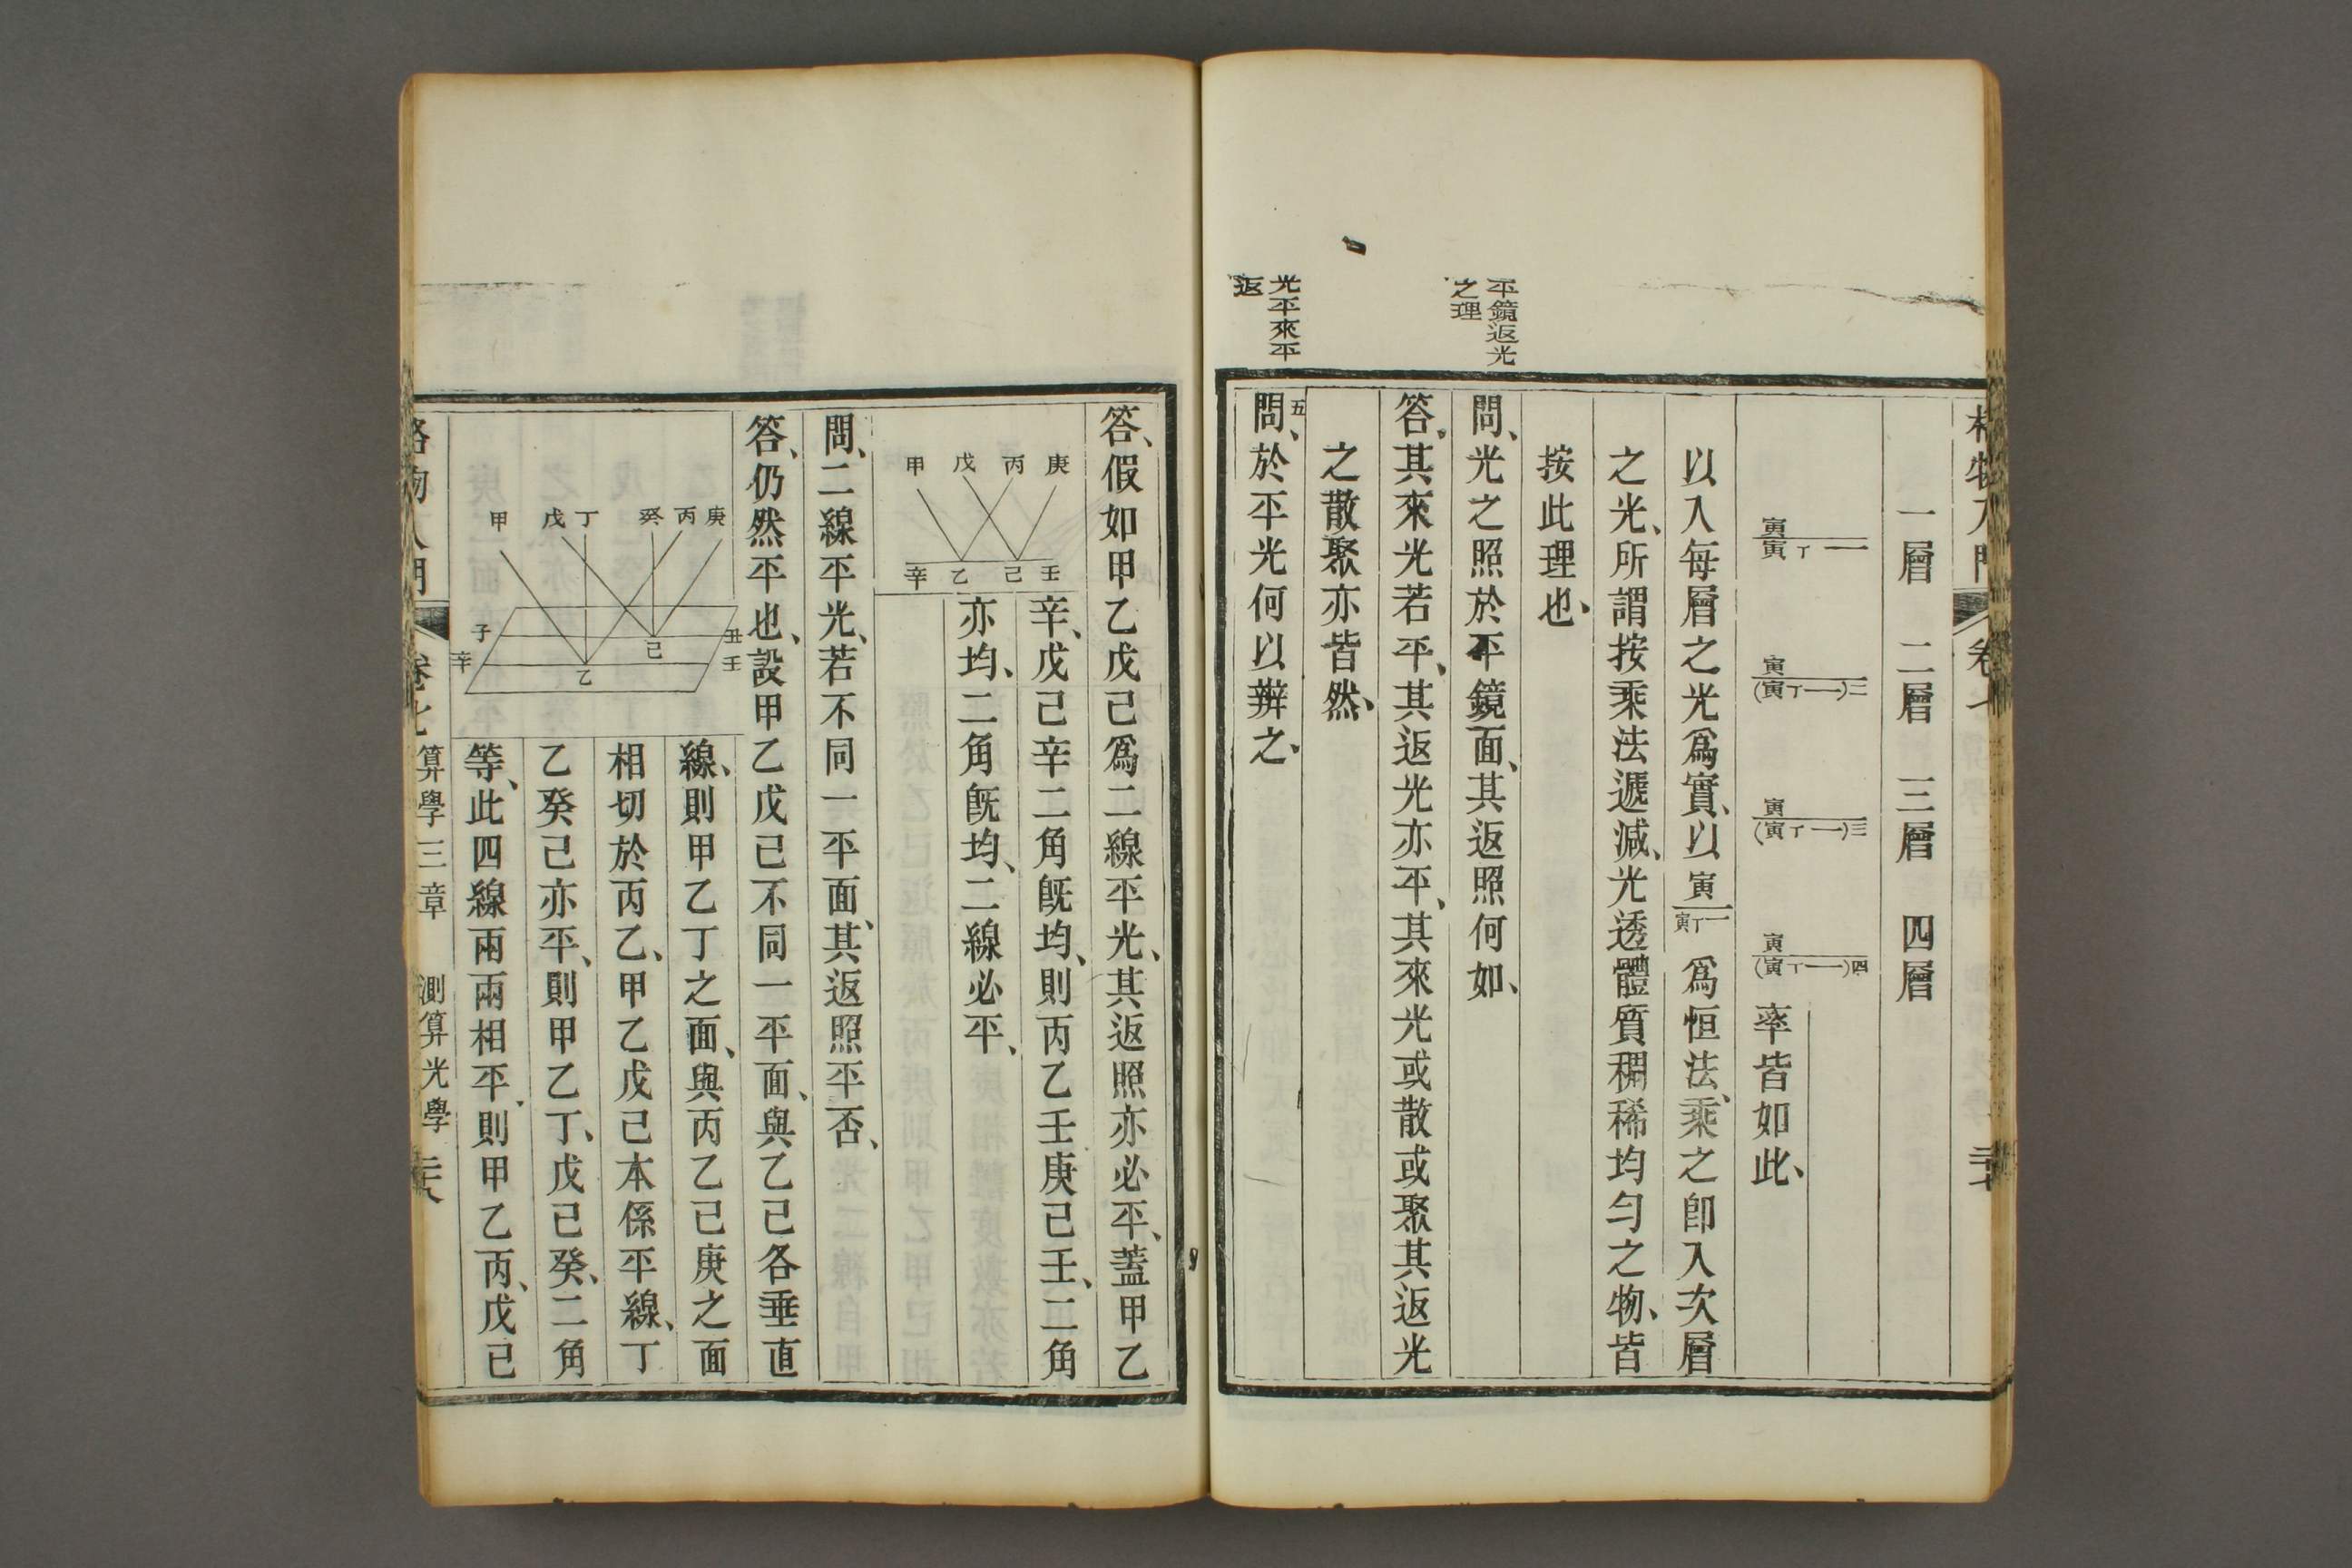 格物入門 卷七 二十七
一層 二層 三層 四層
寅 寅丅一
寅 (寅丅一)二
寅 (寅丅一)三
寅 (寅丅一)四
率皆如此、
以入每層之光爲實、以 寅 寅丅一 爲恒法、乘之卽入次層
之光、所謂按乘法遞減、光透體質稠稀均勻之物、皆
按此理也、
平鏡返光
之理
問、光之照於平鏡面、其返照何如、
答、其來光若平、其返光亦平、其來光或散或聚其返光
之散聚亦皆然、
光平來平
返
五
問、於平光何以辨之、
答、假如甲乙戊己爲二線平光、其返照亦必平、蓋甲乙
甲 戊 丙 庚
辛 乙 己 壬
辛、戊己辛二角旣均、則丙乙壬庚己壬、二角
亦均、二角旣均、二線必平、
問、二線平光、若不同一平面、其返照平否、
答、仍然平也、設甲乙戊己不同一平面、與乙己各垂直
甲 戊 丁 癸 丙 庚
子 丑
辛 乙 己 壬
線、則甲乙丁之面、與丙乙己庚之面
相切於丙乙、甲乙戊己本係平線、丁
乙癸己亦平、則甲乙丁、戊己癸、二角
等、此四線兩兩相平、則甲乙丙、戊己
格物入門 卷七 算學三章 測算光學 二十八